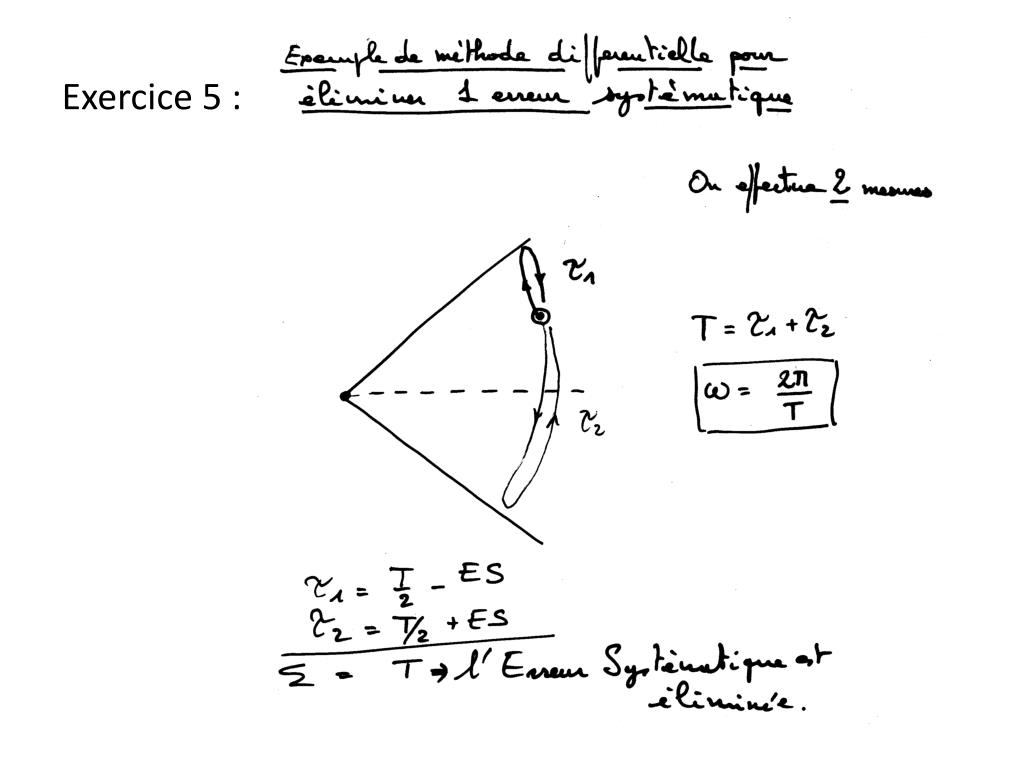 Exemple de méthode différentielle pour
Exercice 5 : éliminer 1 erreur systématique
On effectue 2 mesures
τ1
T = τ1 + τ2
ω = 2π/T
τ2
τ1 = T/2 - ES
τ2 = T/2 + ES
Σ = T → l'Erreur Systématique est
éliminée.